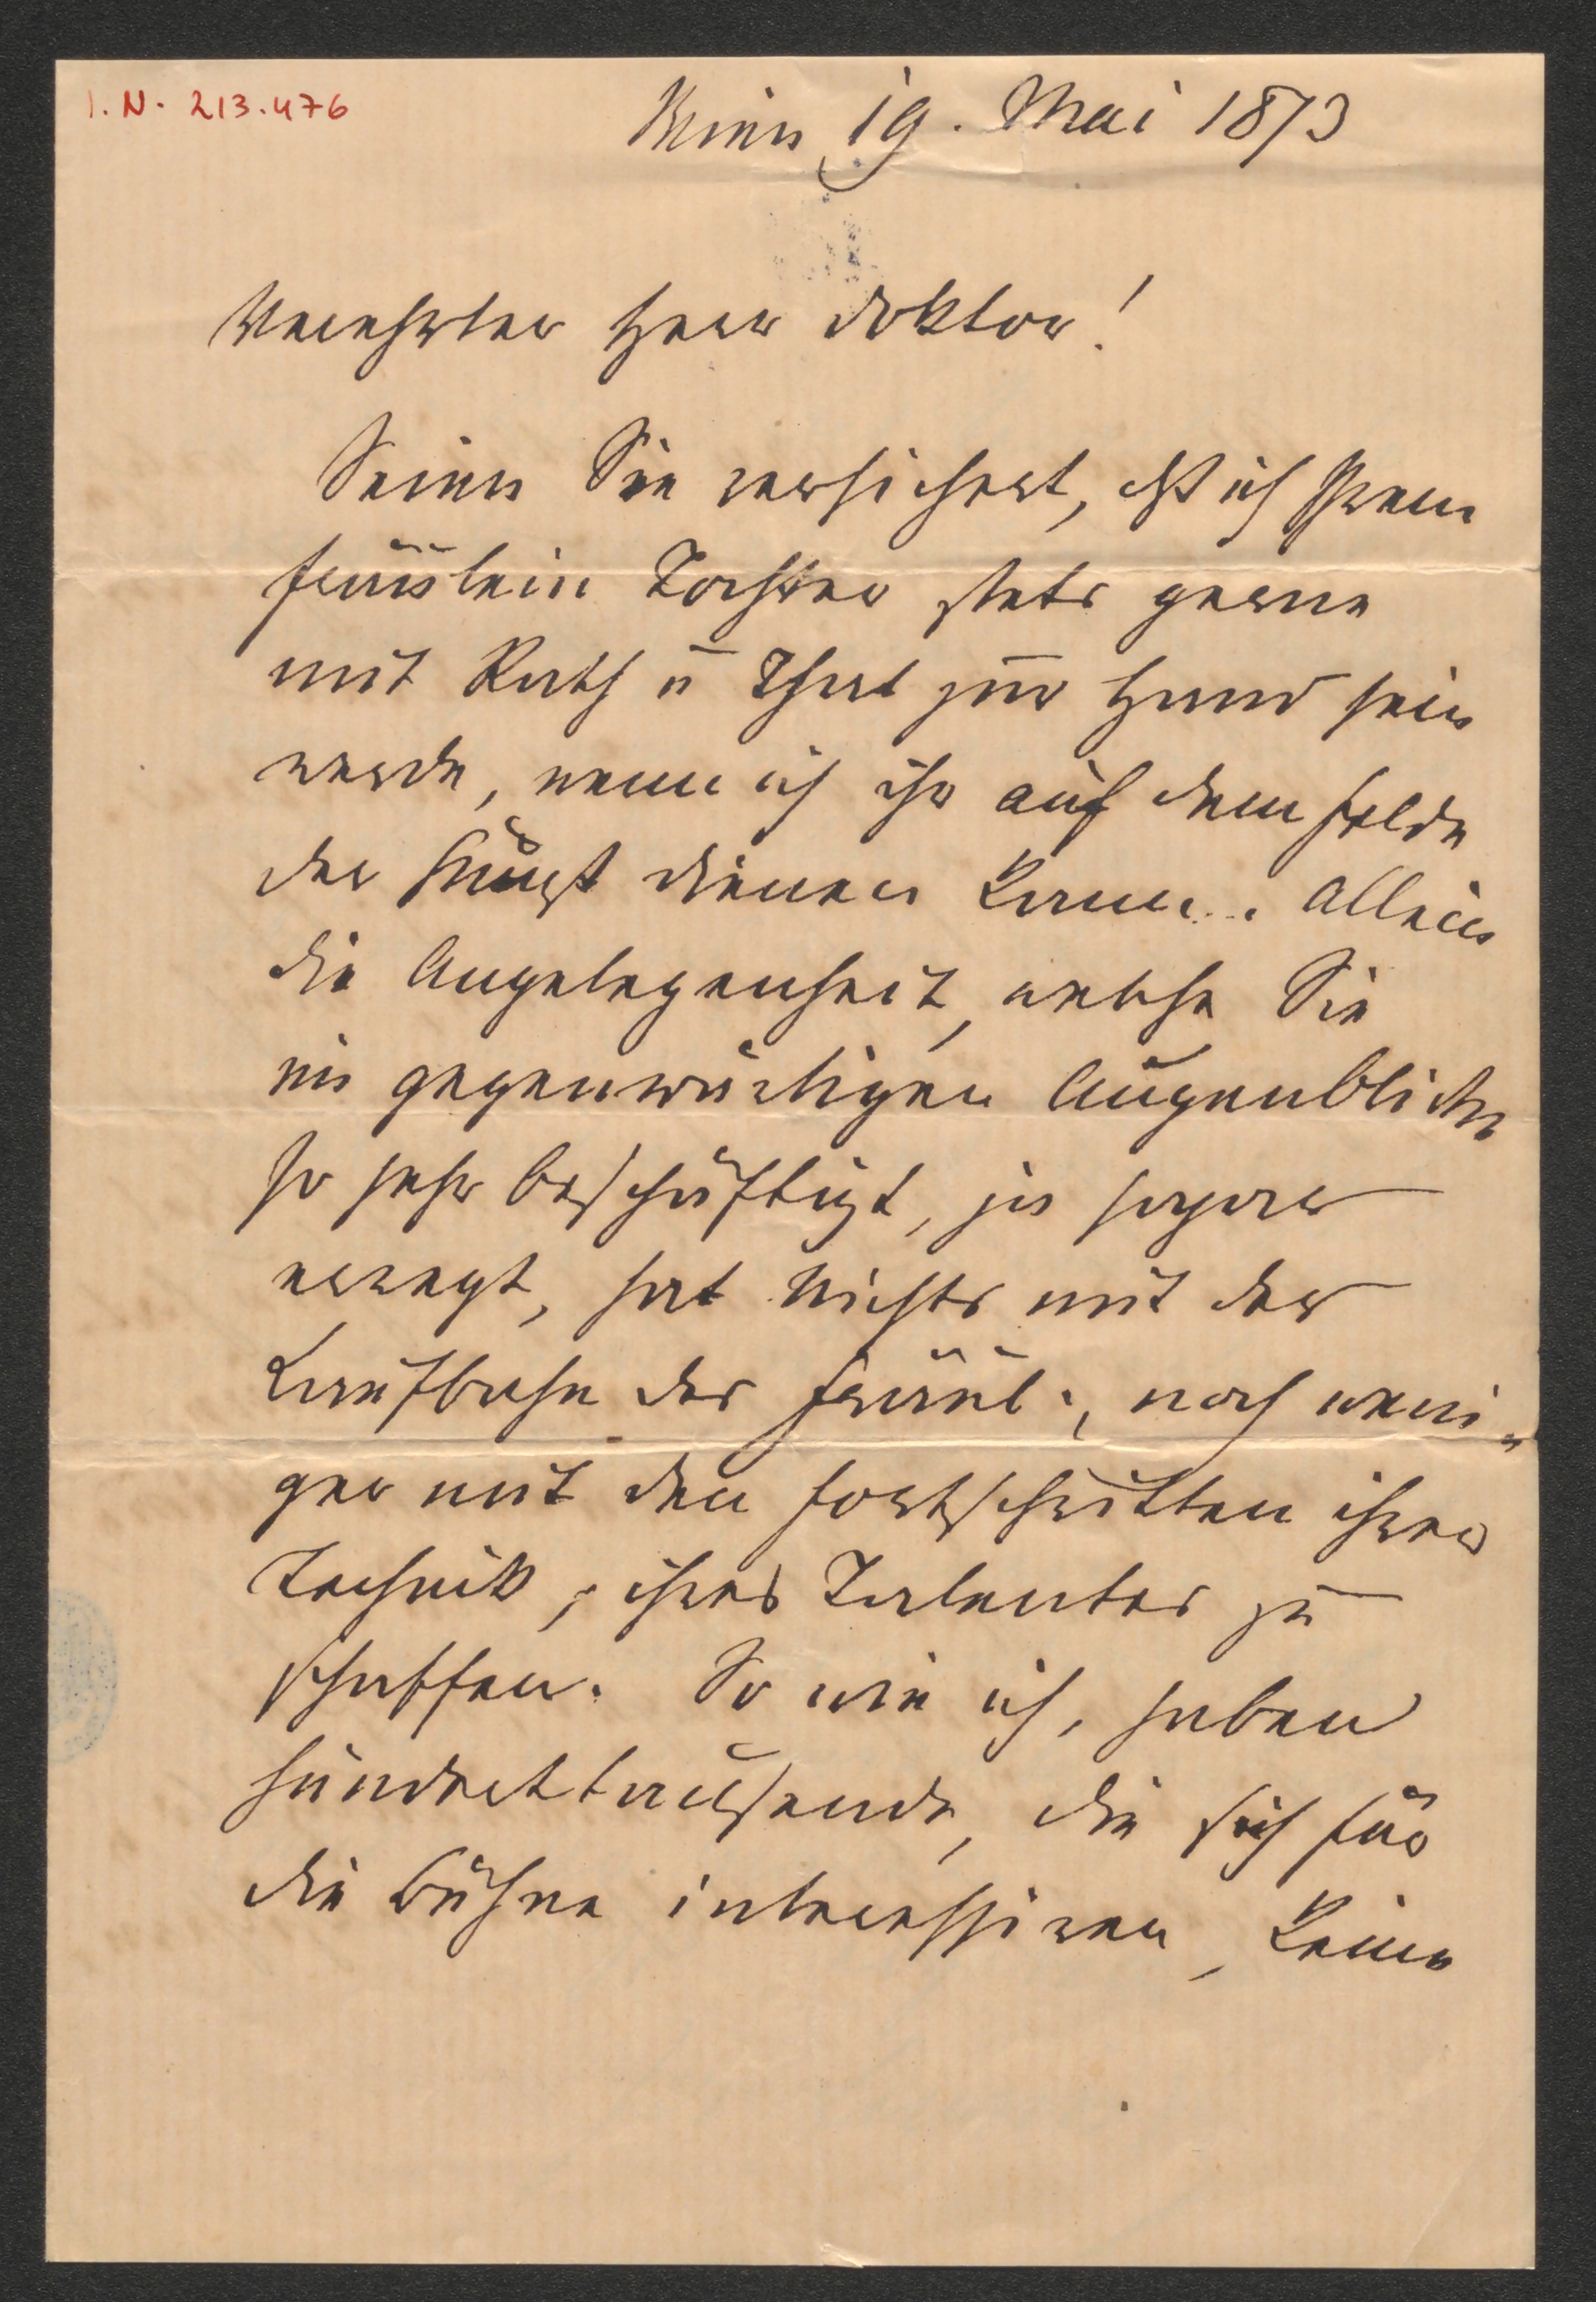 I. N. 213.476
Wien, 19. Mai 1873
Verehrter Herr Doktor!
Seien Sie versichert, dß ich Ihrem
Fräulein Tochter stets gerne
mit Rath u That zur Hand sein
werde, wenn ich ihr auf dem Felde
der Kunst dienen kann. Allein
die Angelegenheit, welche Sie
im gegenwärtigen Augenblicke
so sehr beschäftigt, ja sogar
erregt, hat Nichts mit der
Laufbahn des Fräul., noch weni=
ger mit den Fortschritten ihrer
Technik, ihres Talentes zu
schaffen. So wie ich, haben
Hunderttausende, die sich für
die Bühne interessiren, keine